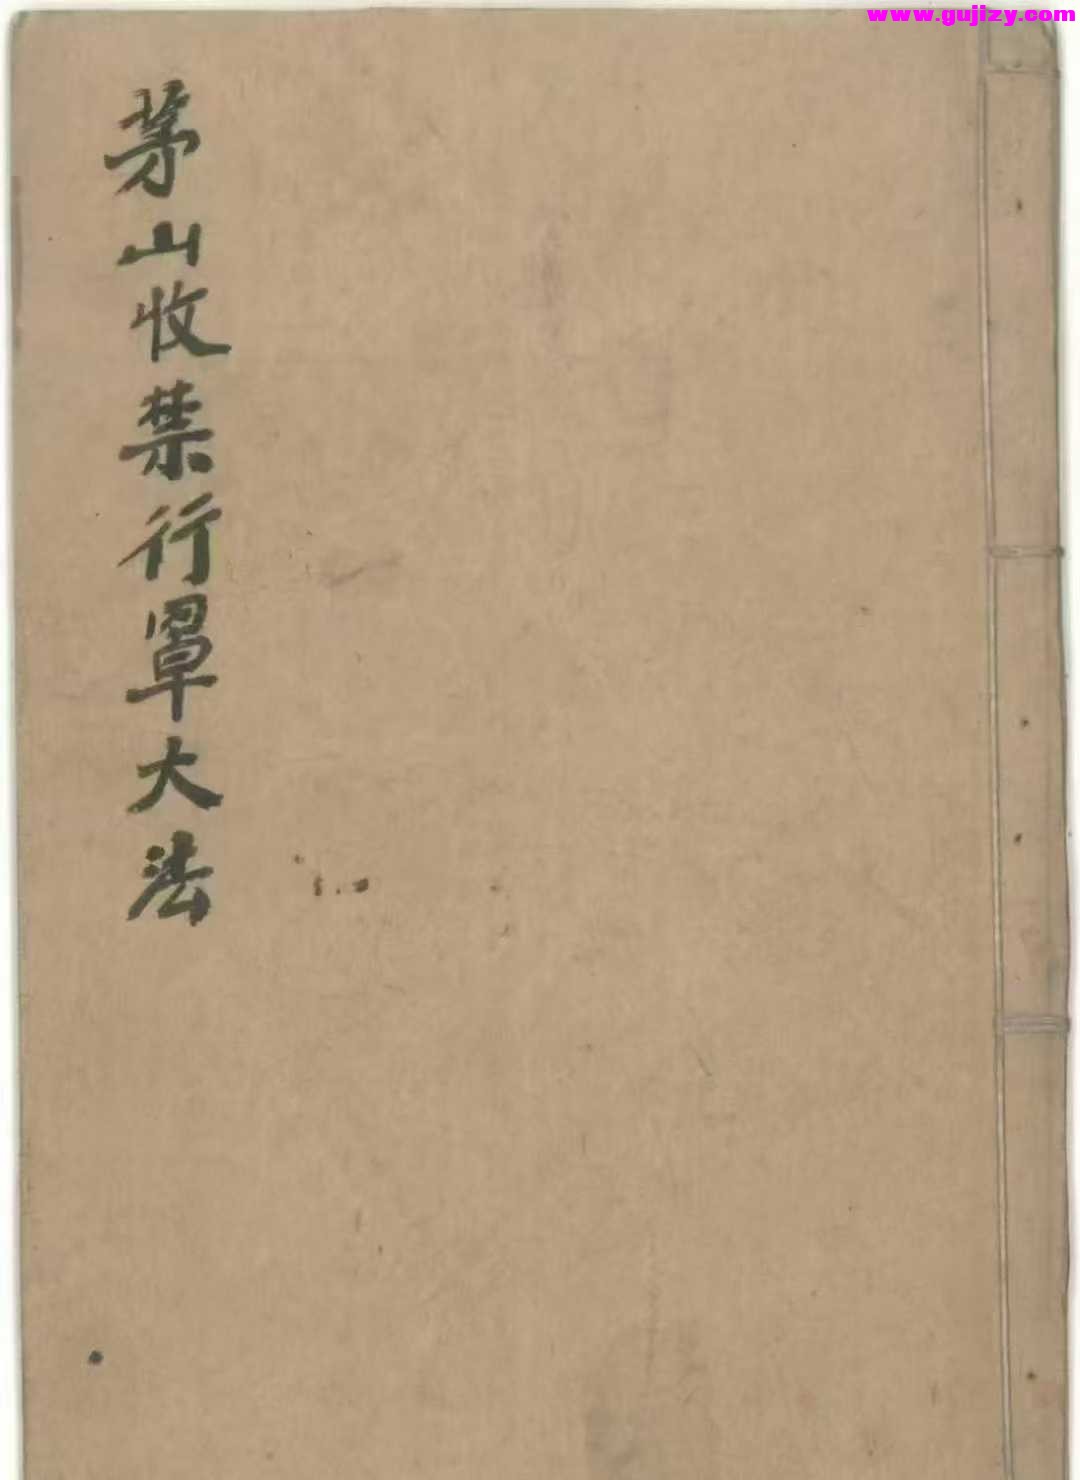 www.gujizy.com
茅山收禁行罩大法